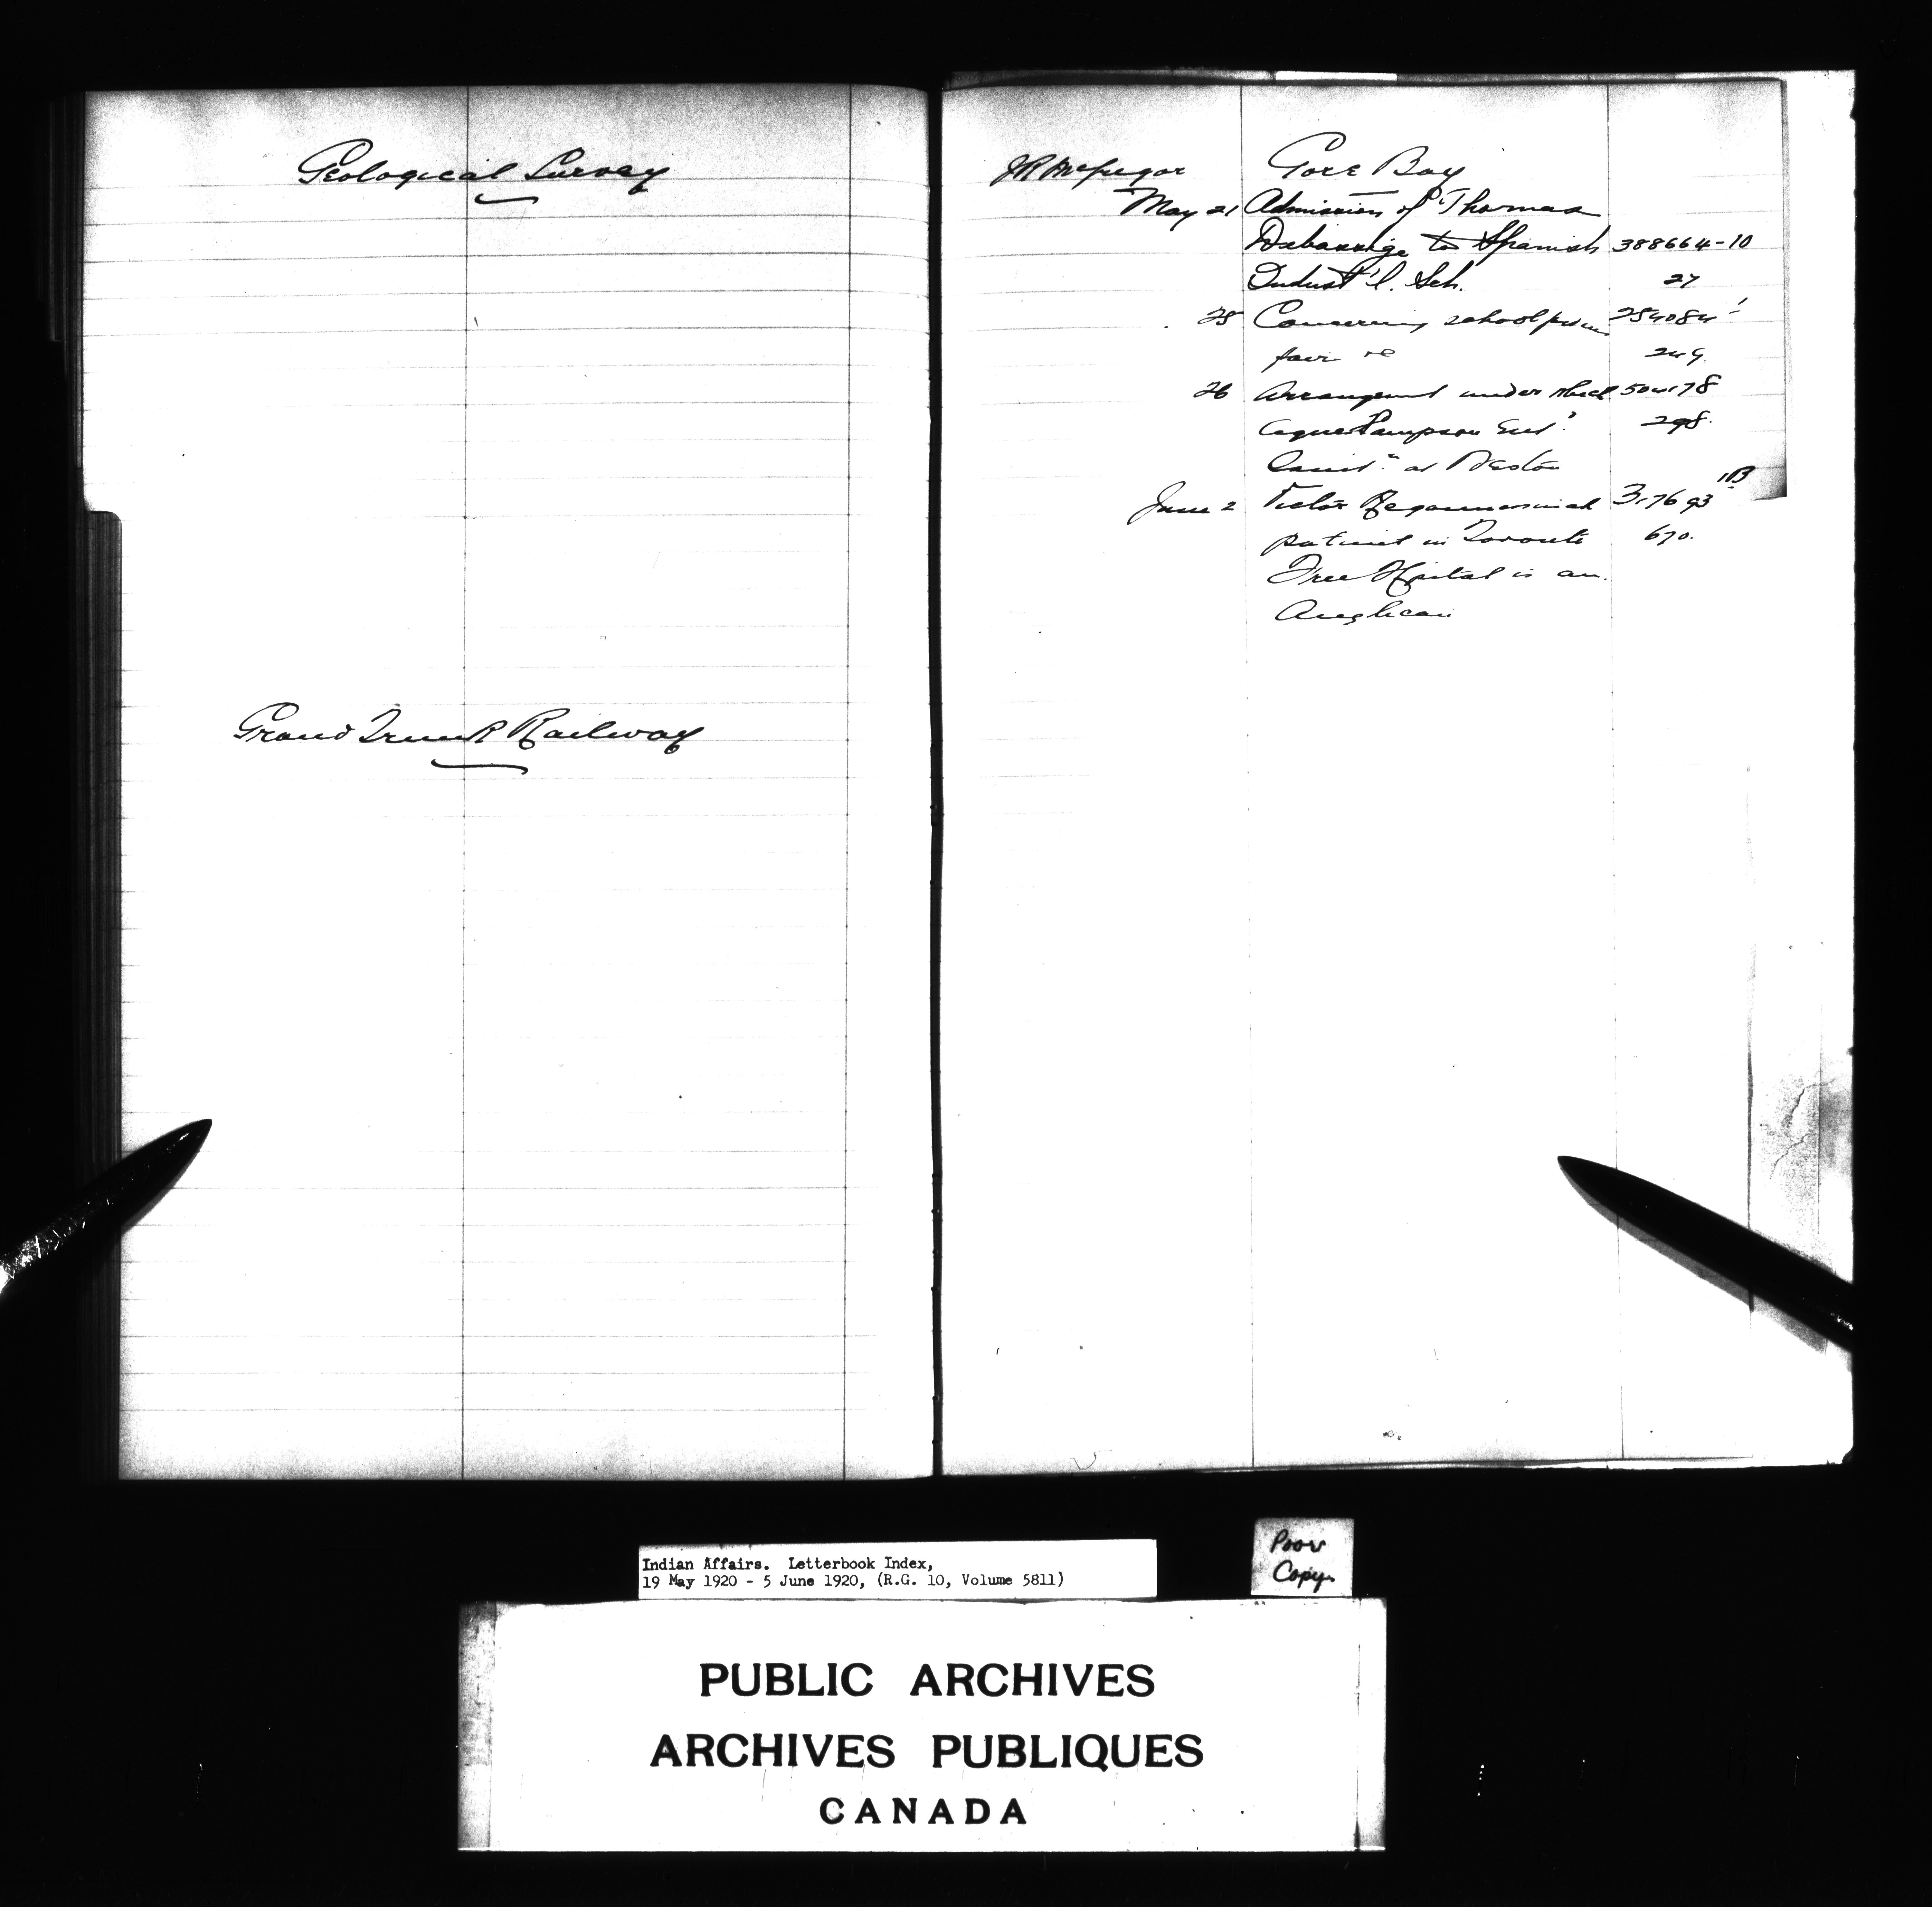 Geological Survey
Grand Trunk Railway
JR McGregor Gore Bay
May 21 Admission of Thomas
Debassige to Spanish 388664-10
Indust'l. Sch. 27
25 Concerning school 254084-1
fair re 249.
26 Arrangement under which 504178
Sampson Ent'd 298.
Sanit'm at Weston
June 2 Victor 317693 1B
patient in Toronto 670.
Free Hospital is an
Anglican
Indian Affairs. Letterbook Index,
19 May 1920 - 5 June 1920, (R.G. 10, Volume 5811)
Poor
Copy
PUBLIC ARCHIVES
ARCHIVES PUBLIQUES
CANADA